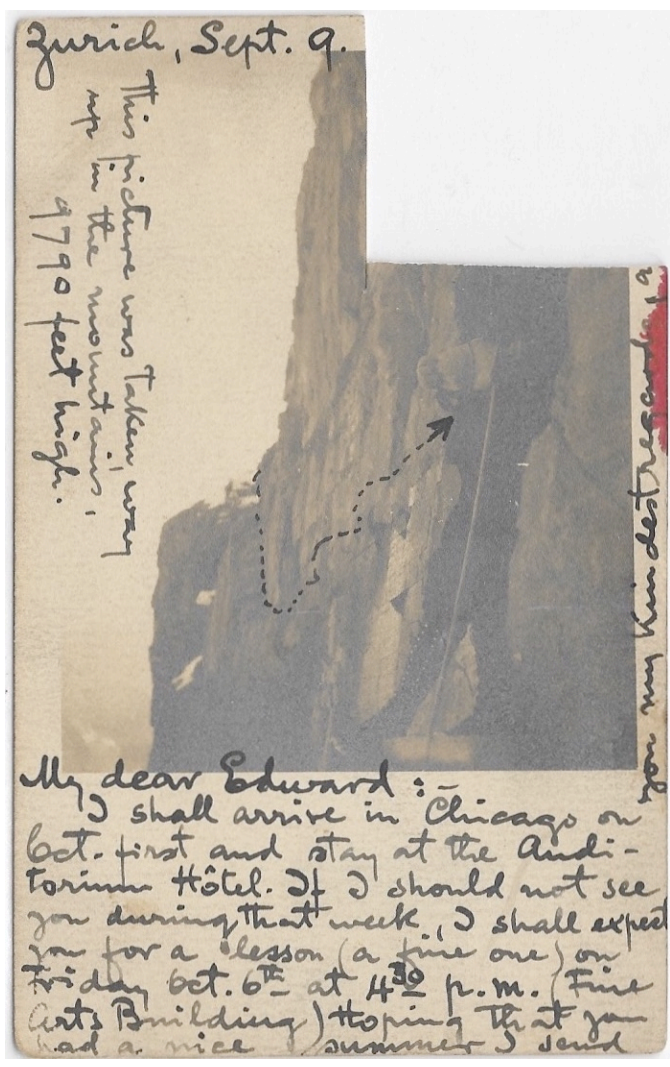 Zurich, Sept. 9.
This picture was taken, way
up in the mountains,
9790 feet high.
My dear Edward :-
I shall arrive in Chicago on
Oct. first and stay at the Audi-
torium Hôtel. If I should not see
you during that week, I shall expect
you for a lesson (a fine one) on
Friday Oct. 6th at 4 30 p.m. (Fine
Arts Building) Hoping that you
had a nice summer I send
you my kindest